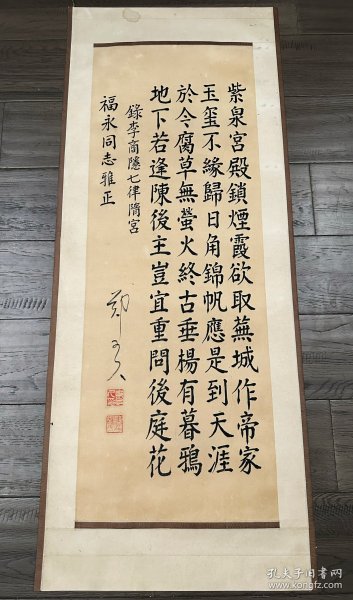 紫泉宮殿鎖煙霞欲取蕪城作帝家
玉璽不緣歸日角錦帆應是到天涯
於今腐草無螢火終古垂楊有暮鴉
地下若逢陳後主豈宜重問後庭花
錄李商隱七律隋宮
福永同志雅正
孔夫子旧书网